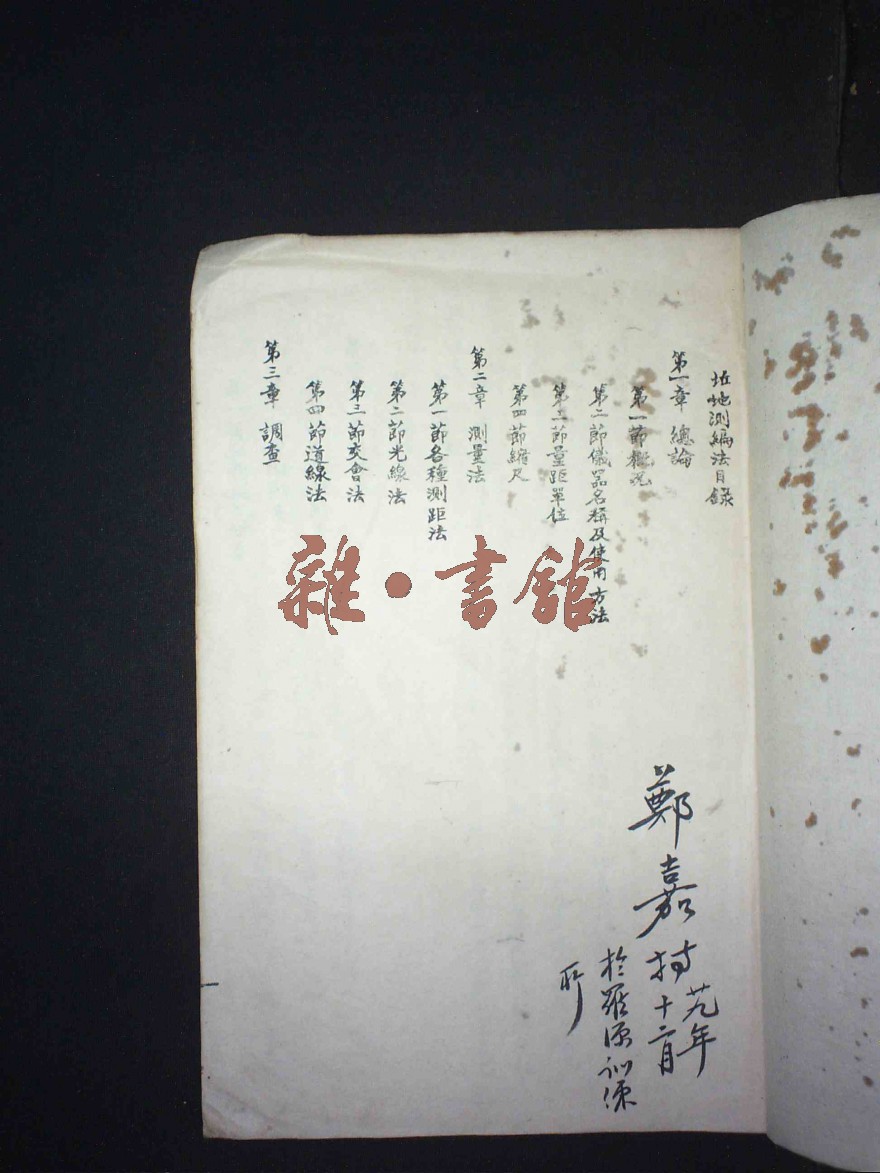 坵地測編法目錄
第一章 總論
第一節概况
第二節儀器名稱及使用方法
第三節量距單位
第四節縮尺
第二章 測量法
第一節各種測距法
第二節光線法
第三節交會法
第四節道線法
第三章 調查
雜·書館
鄭嘉
廿九年
十二月
於羅源訓練
所